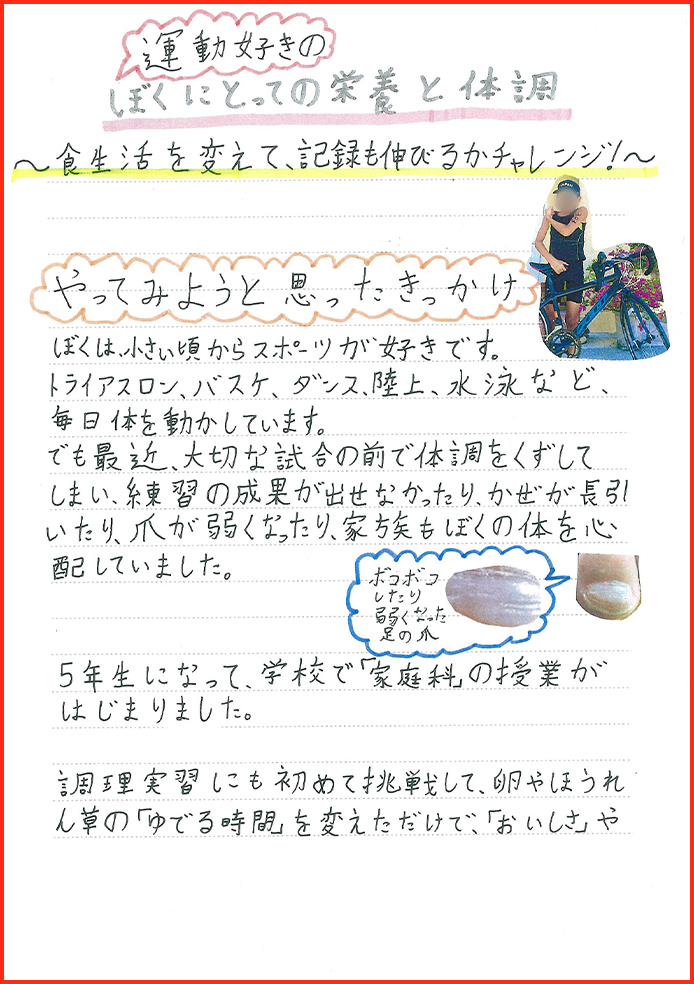 運動好きの
ぼくにとっての栄養と体調
〜食生活を変えて、記録も伸びるかチャレンジ!〜
やってみようと思ったきっかけ
ぼくは、小さい頃からスポーツが好きです。
トライアスロン、バスケ、ダンス、陸上、水泳など、
毎日体を動かしています。
でも最近、大切な試合の前で体調をくずして
しまい、練習の成果が出せなかったり、かぜが長引
いたり、爪が弱くなったり、家族もぼくの体を心
配していました。
ボコボコ
したり
弱くなった
足の爪
5年生になって、学校で「家庭科」の授業が
はじまりました。
調理実習にも初めて挑戦して、卵やほうれ
ん草の「ゆでる時間」を変えただけで、「おいしさ」や